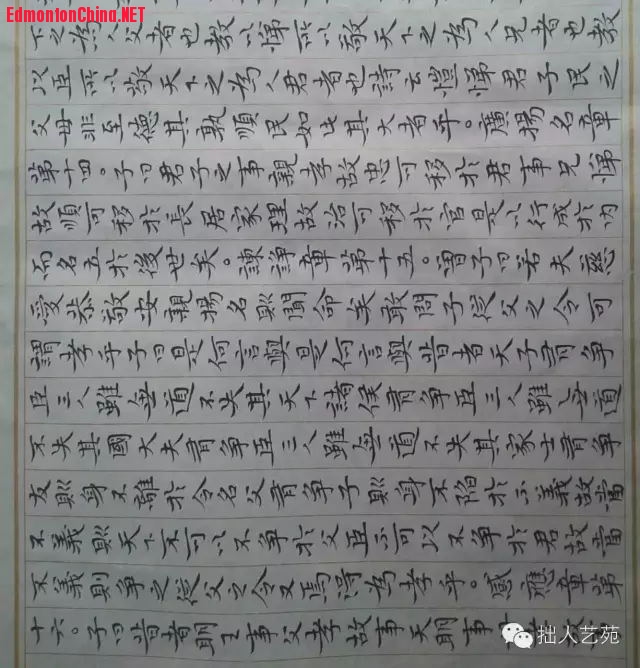 EdmontonChina.NET
下之為人父者也教以悌所以敬天下之為人兄者也教
以臣所以敬天下之為人君者也詩云愷悌君子民之
父母非至德其孰順民如此其大者乎。廣揚名章
第十四。子曰君子之事親孝故忠可移於君事兄悌
故順可移於長居家理故治可移於官是以行成於內
而名立於後世矣。諫諍章第十五。曾子曰若夫慈
愛恭敬安親揚名則聞命矣敢問子從父之令可
謂孝乎子曰是何言與是何言與昔者天子有爭
臣三人雖無道不失其天下諸侯有爭臣三人雖無道
不失其國大夫有爭臣三人雖無道不失其家士有爭
友則身不離於令名父有爭子則身不陷於不義故當
不義則天下不可以不爭於父臣不可以不爭於君故當
不義則爭之從父之令又焉得為孝乎。感應章第
十六。子曰昔者明王事父孝故事天明事
拙人艺苑